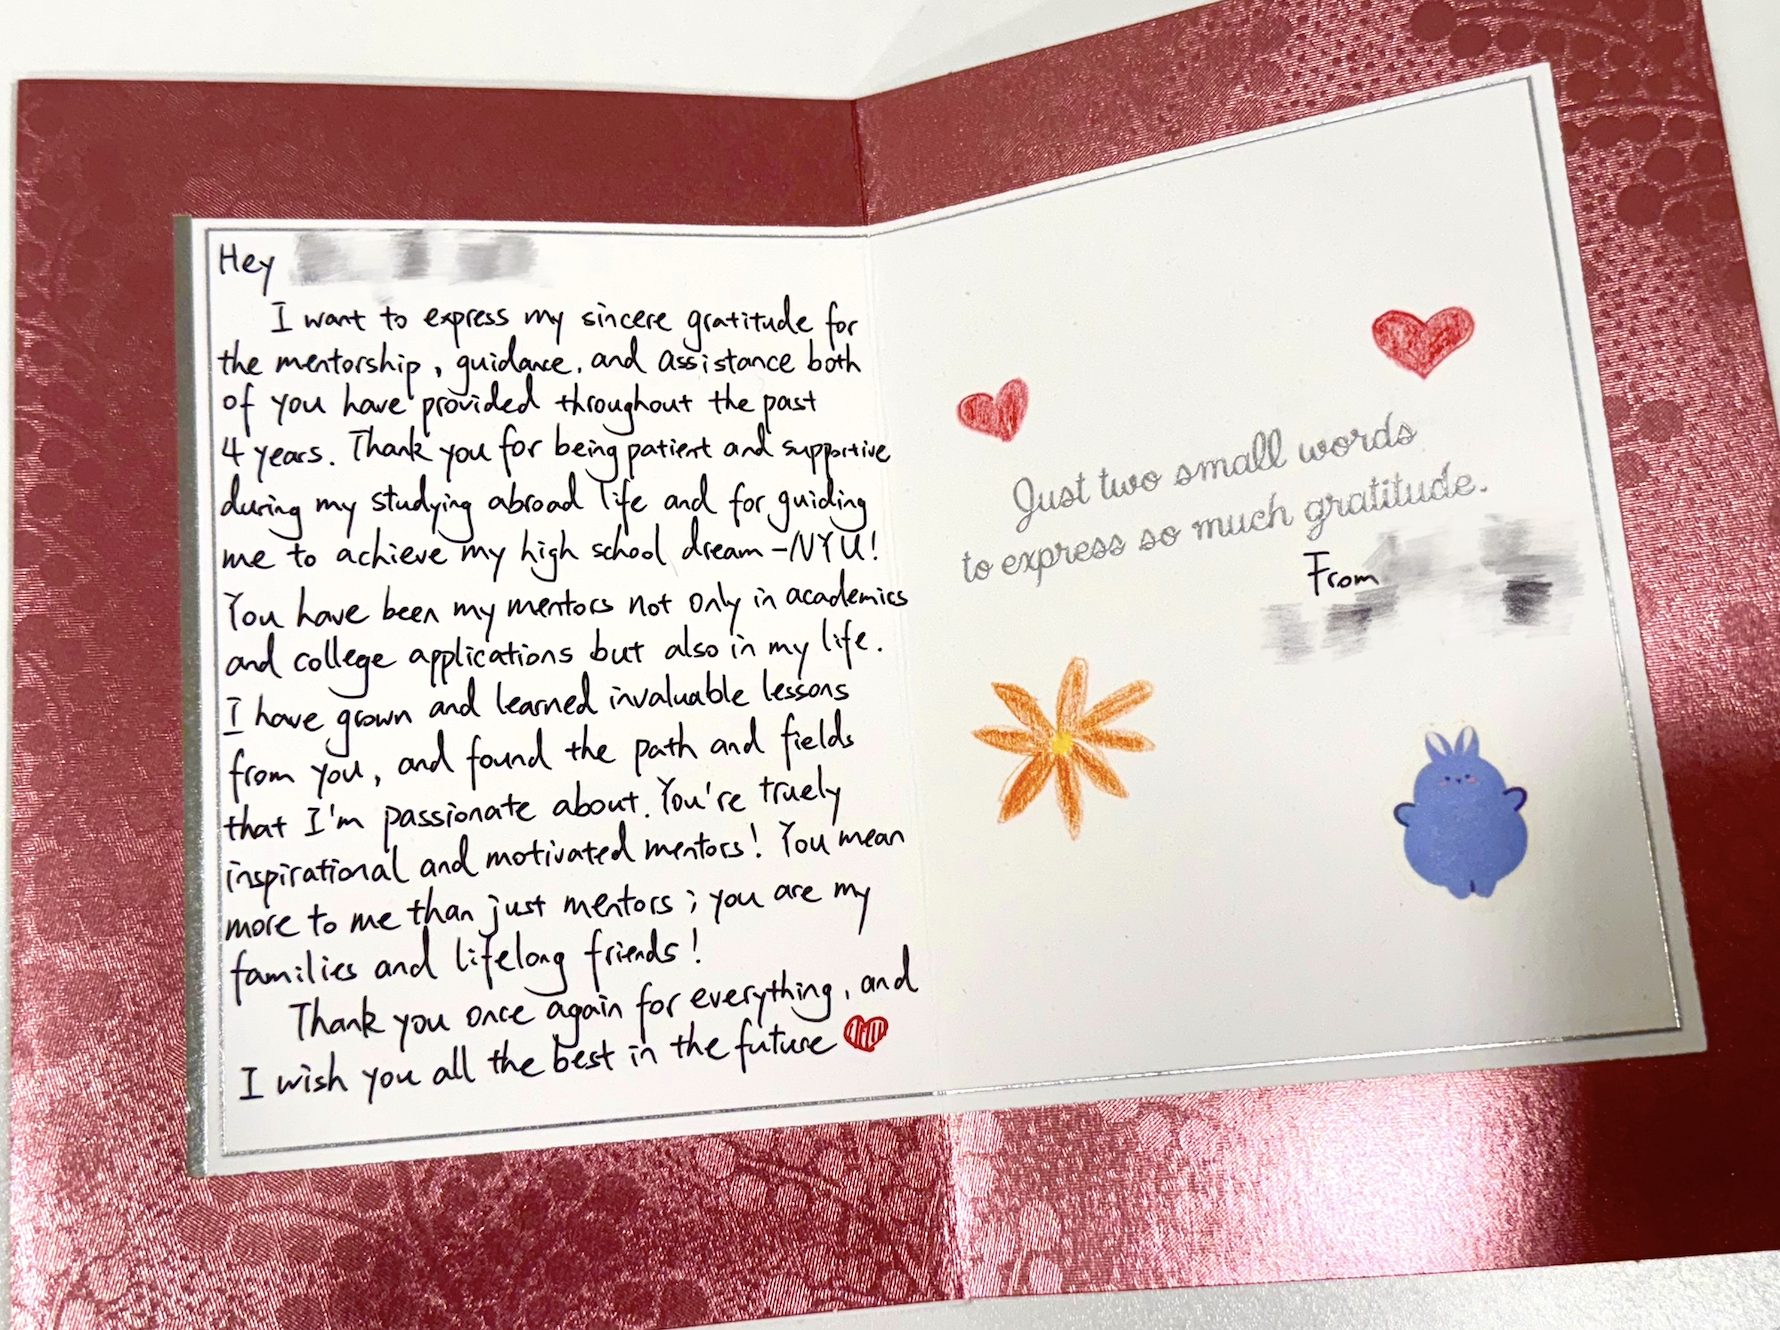 Hey
I want to express my sincere gratitude for
the mentorship, guidance, and assistance both
of you have provided throughout the past
4 years. Thank you for being patient and supportive
during my studying abroad life and for guiding
me to achieve my high school dream - NYU!
You have been my mentors not only in academics
and college applications but also in my life.
I have grown and learned invaluable lessons
from you, and found the path and fields
that I'm passionate about. You're truely
inspirational and motivated mentors! You mean
more to me than just mentors; you are my
families and lifelong friends!
Thank you once again for everything, and
I wish you all the best in the future
Just two small words
to express so much gratitude.
From